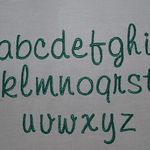 abcdefghi
klmnoqrst
uvwxyz